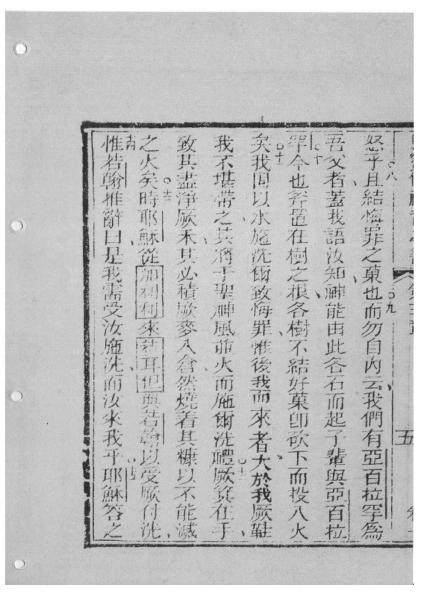 怒乎且結悔罪之菓也而勿自內云我們有亞百拉罕為
吾父者蓋我語汝知神能由此各石而起子輩與亞百拉
罕今也斧置在樹之根各樹不結好菓卽砍下而投入火
矣我固以水施洗爾致悔罪惟後我而來者大於我厥鞋
我不堪帶之其將于聖神風並火而施爾洗禮厥箕在手
致其盡淨厥禾其必積厥麥入倉然燒着其糠以不能滅
之火矣時耶穌從加利利來若耳但與若翰以受厥付洗
惟若翰推辭曰是我需受汝施洗而汝來我乎耶穌答之
五